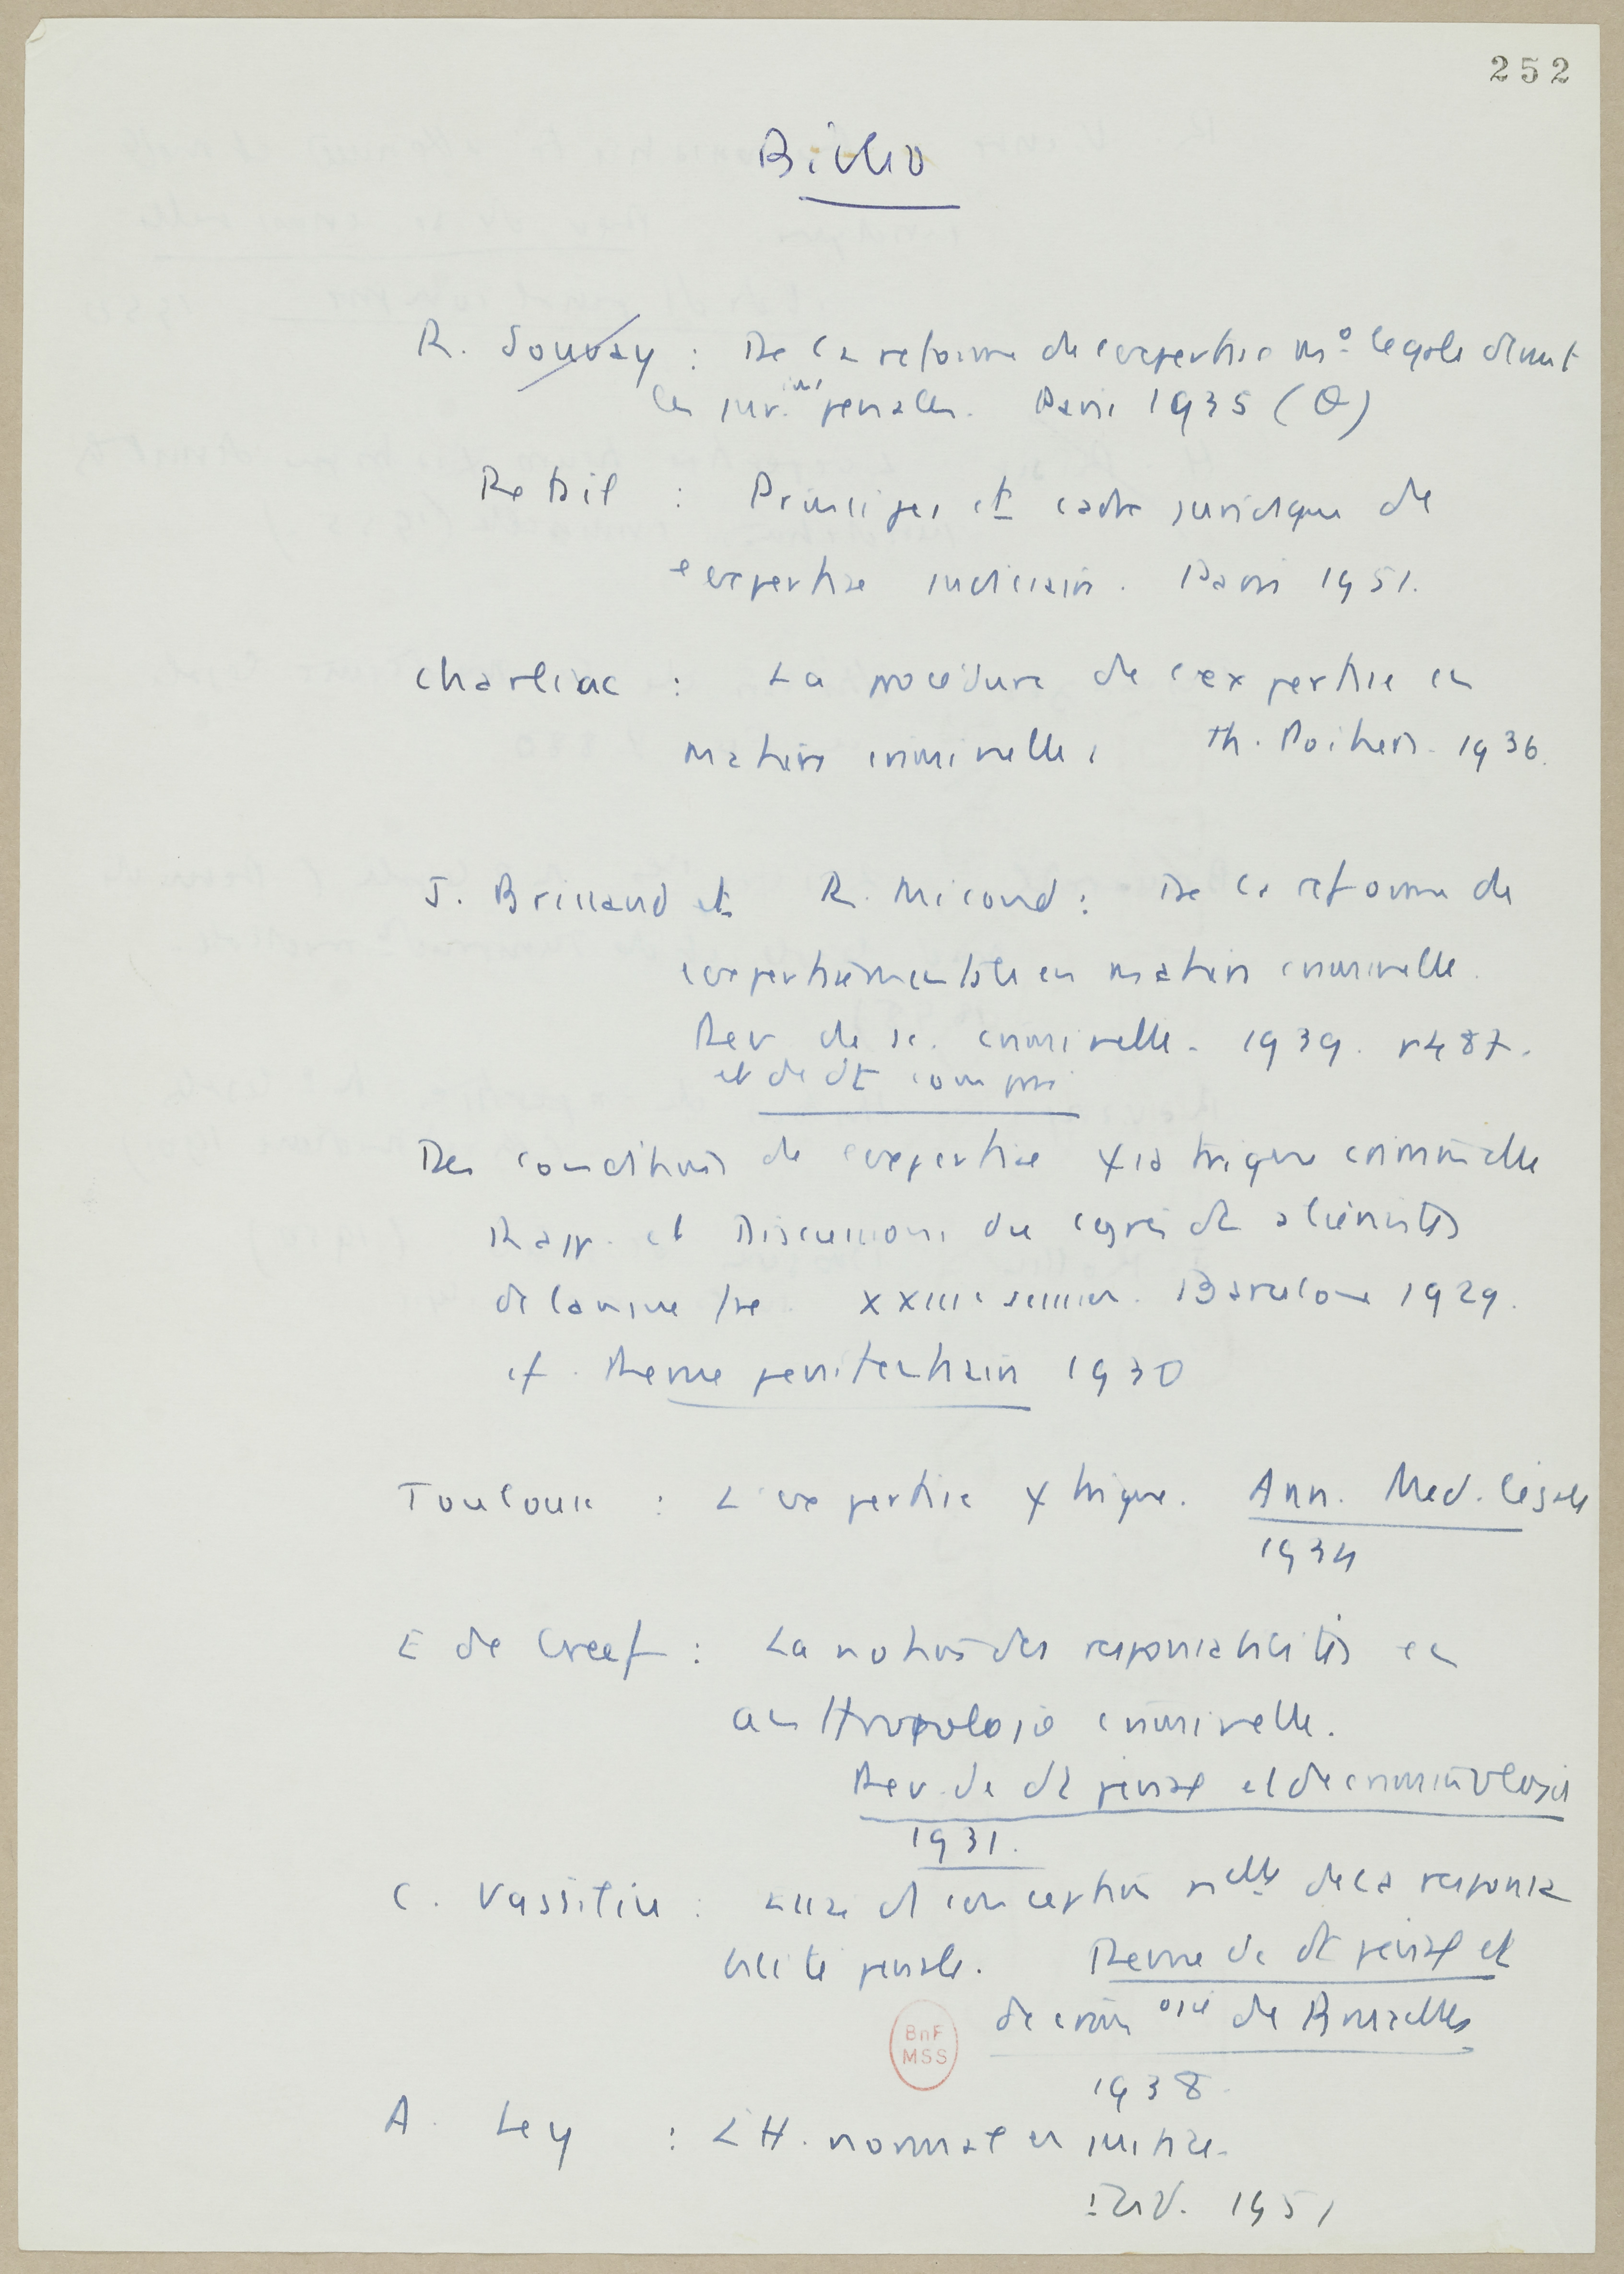 252
Biblio
R. Souvay : De la reforme de l'expertise mo legale devant
les jur. penales. Paris 1935 (θ)
Retail : Principes et cadre juridique de
l'expertise judiciaire. Paris 1951.
Charliac : La procédure de l'expertise en
matière criminelle, Th. Poitiers. 1936.
J. Brissaud et R. Micoud : De la reforme de
l'expertise mentale en matière criminelle.
Rev de sc. criminelle. 1939. p487.
et de dt comparé
Des conditions de l'expertise ψiatrique criminelle
Rapp. et Discussions du Cgrès des aliénistes
de langue fse XXXIIIe session. Barcelone 1929.
cf. Revue penitentiaire 1930
Toulouse : L'expertise ψtrique. Ann. Med. légale
1934
E de Greef : La notion des responsabilités en
anthropologie criminelle.
Rev. de dt pénal et de criminologie
1931.
C. Vassiliu : conception nelle de la responsa
bilité pénale. Revue de dt pénal et
de crim ogie de Bruxelles
1938.
A. Ley : L'H. normal en justice.
Ibid. 1951
BnF
MSS